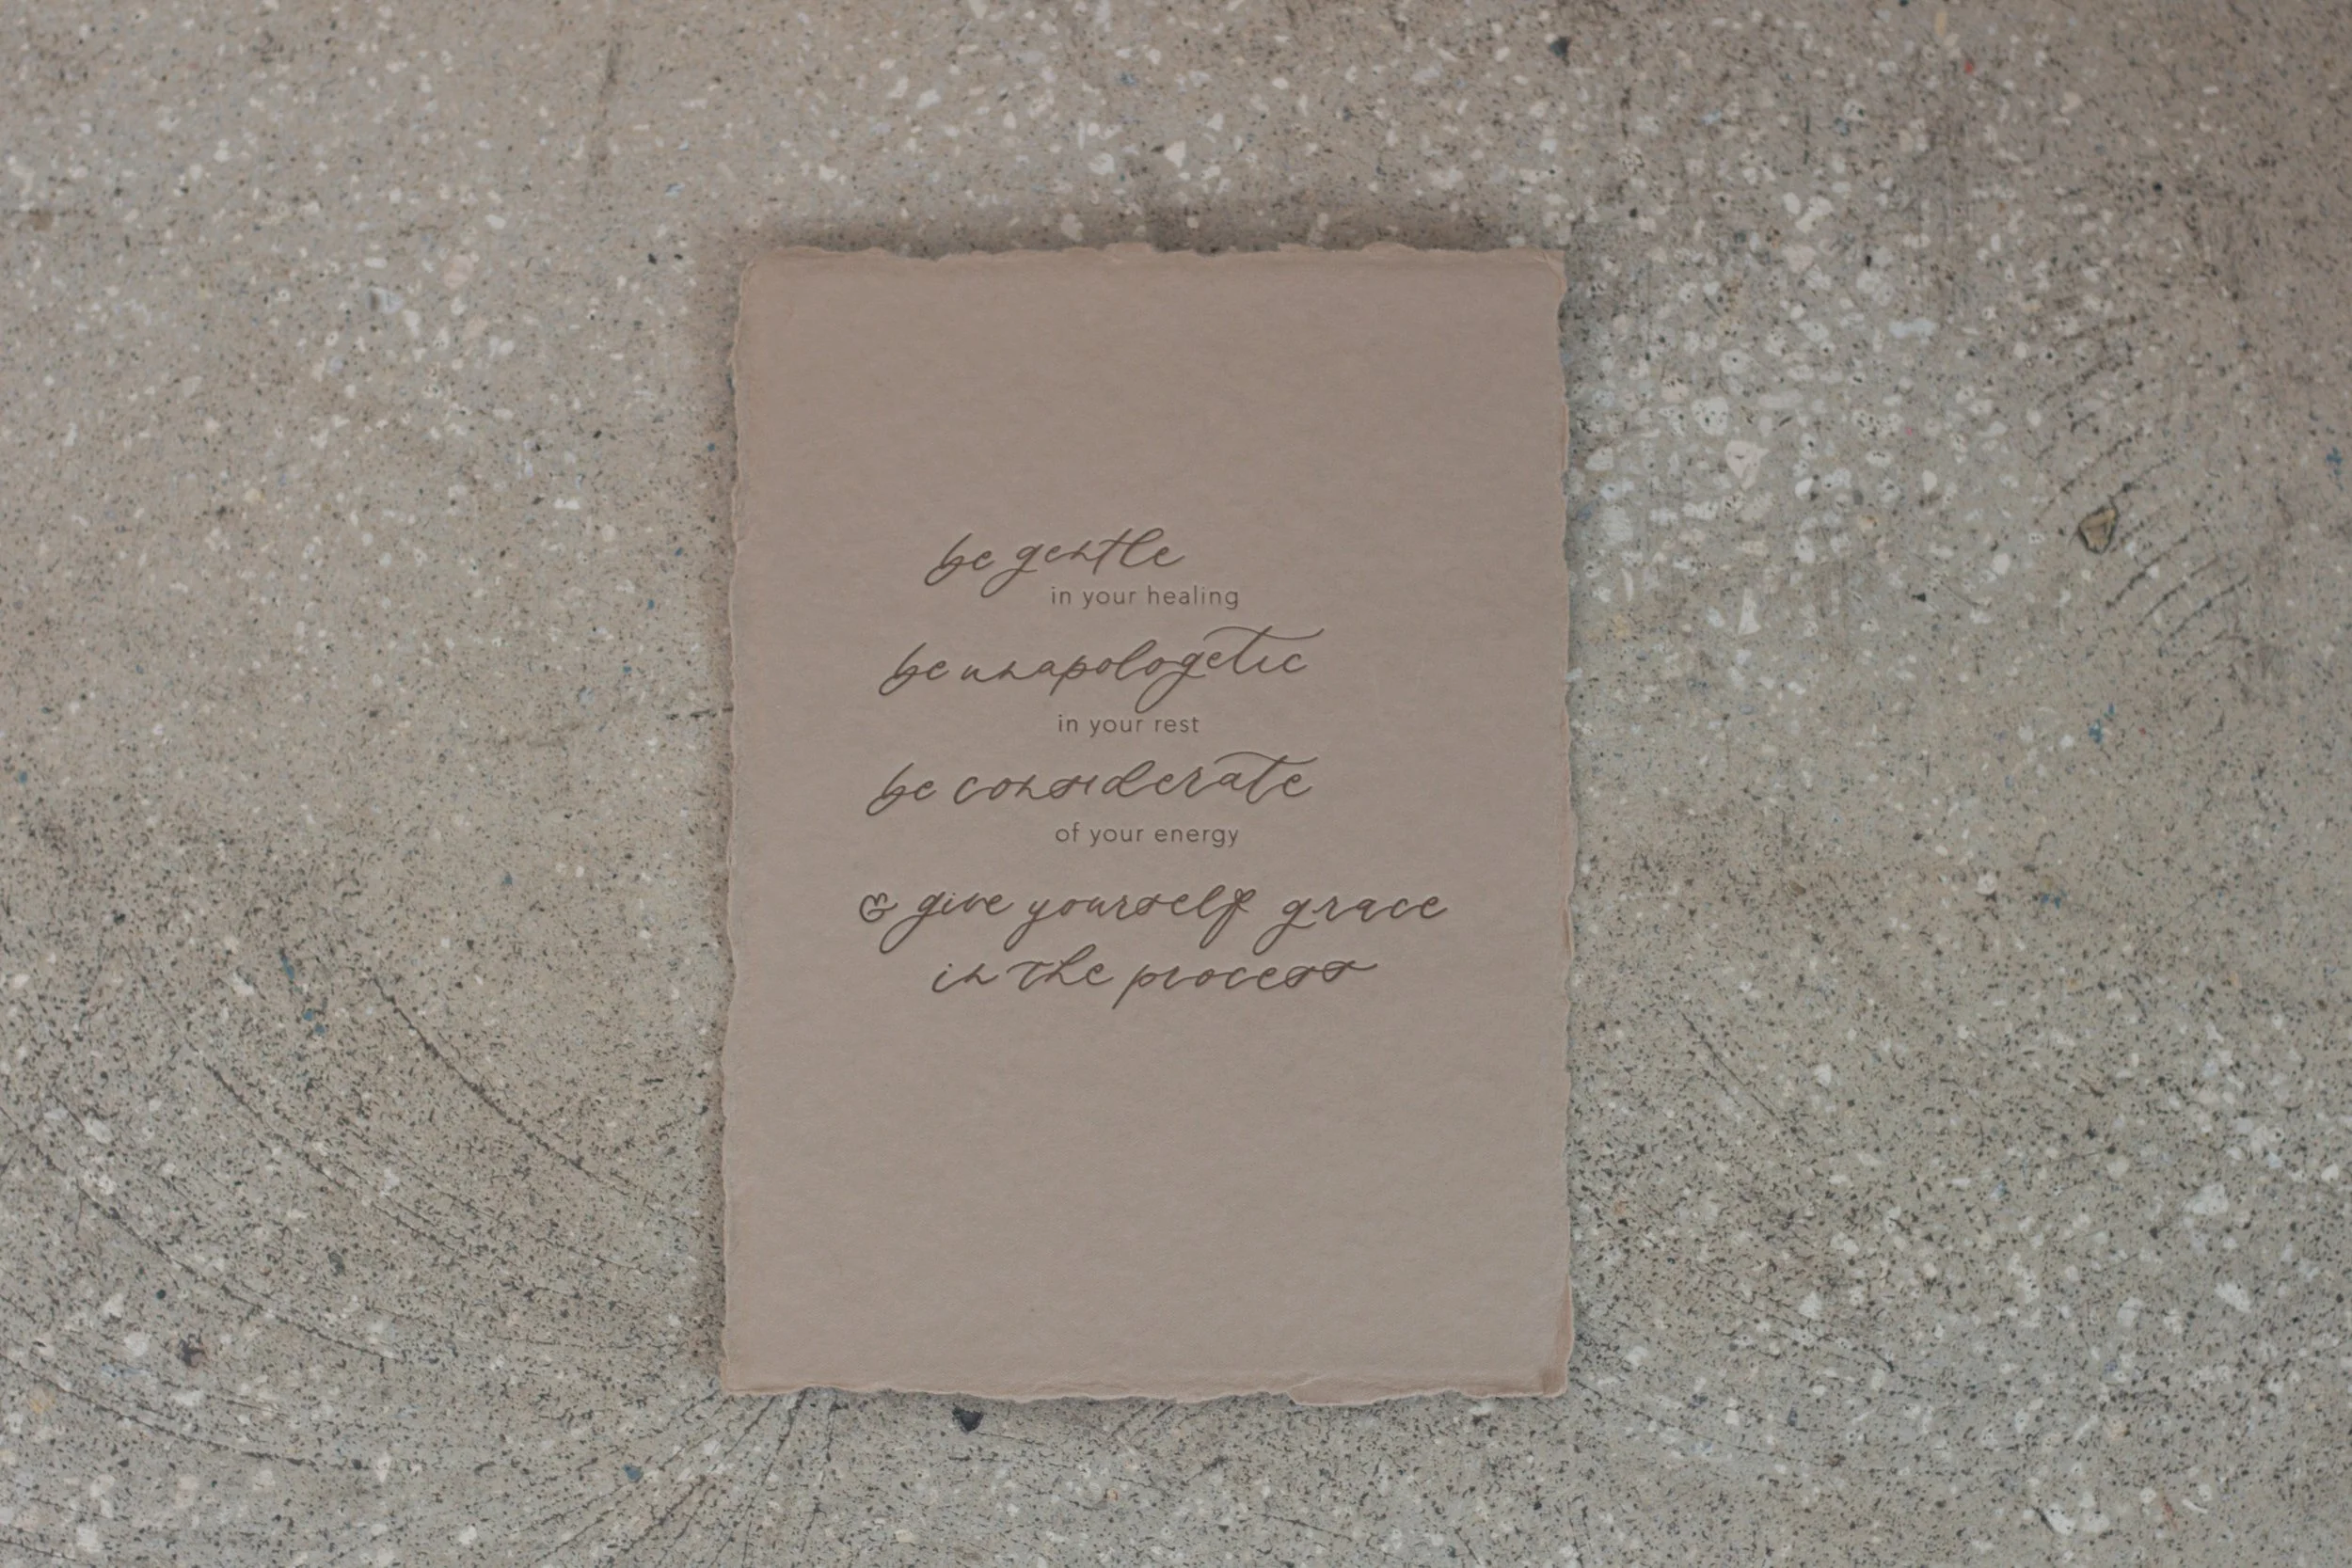 be gentle
in your healing
be unapologetic
in your rest
be considerate
of your energy
& give yourself grace
in the process